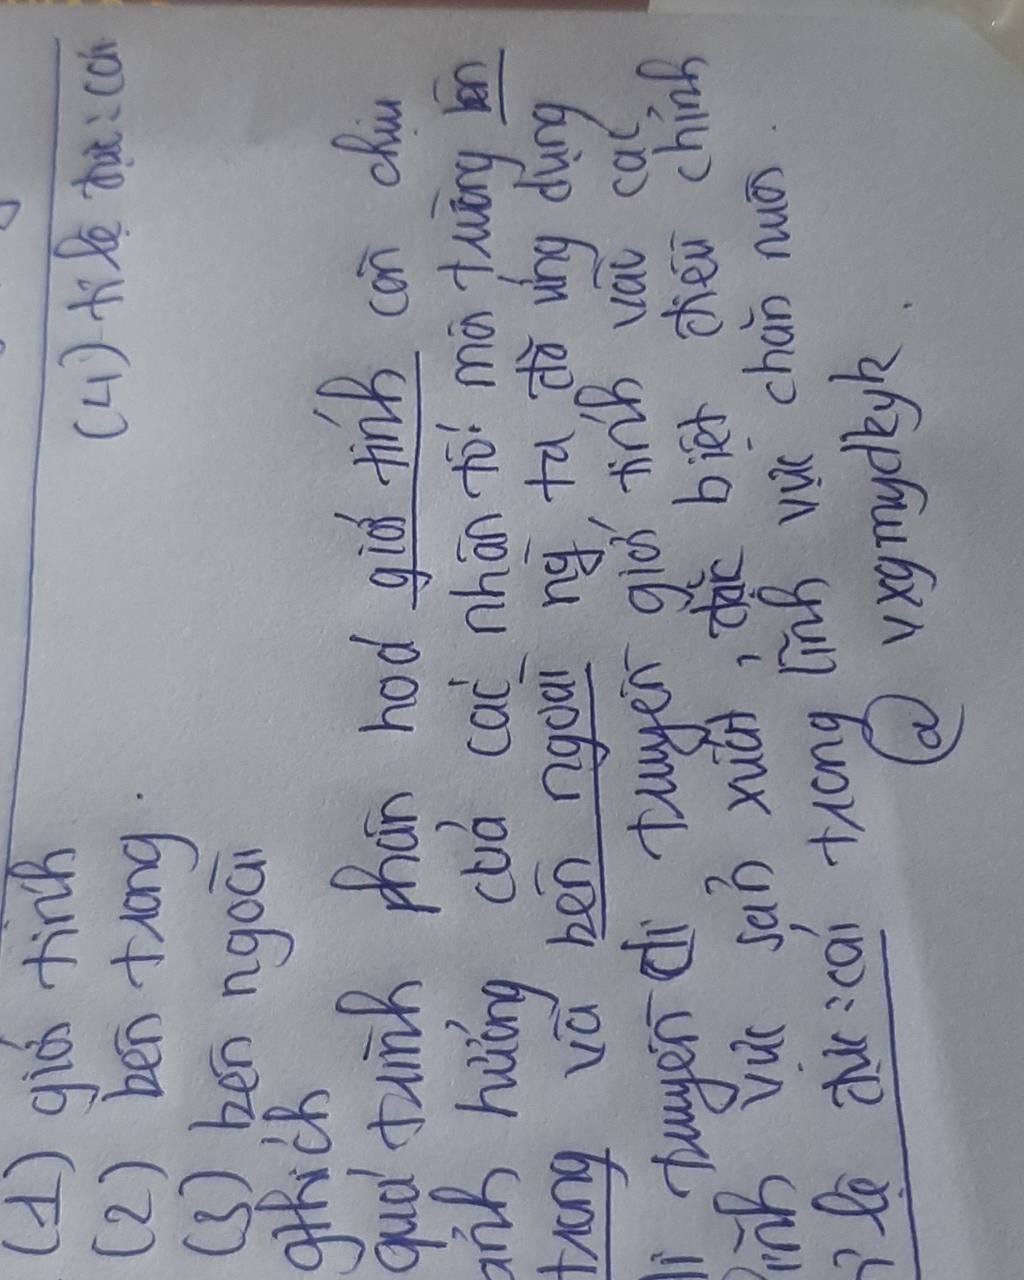 (1) giới tính
(4) tỉ lệ đực : cái
(2) bên trong.
(3) bên ngoài
gthích
quá trình phân hoá giới tính còn chịu
ảnh hưởng của các nhân tố môi trường bên
trong và bên ngoài, ng ta đã ứng dụng
di truyền di truyền giới tính vào các
lĩnh vực sản xuất, đặc biệt điều chỉnh
tỉ lệ đực : cái trong lĩnh vực chăn nuôi.
@ vxgmydkyk.